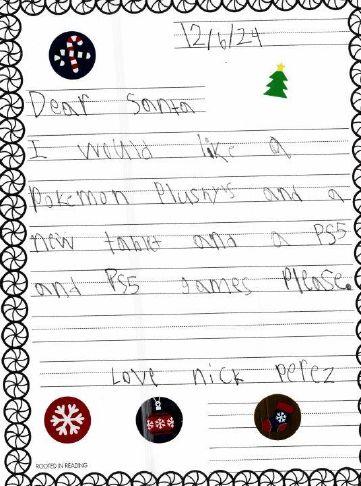 12/6/24
Dear Santa
I would like a
Pokemon Plushy's and a
new tablet and a PS5
and PS5 games Please.
Love nick perez
ROOTED IN READING